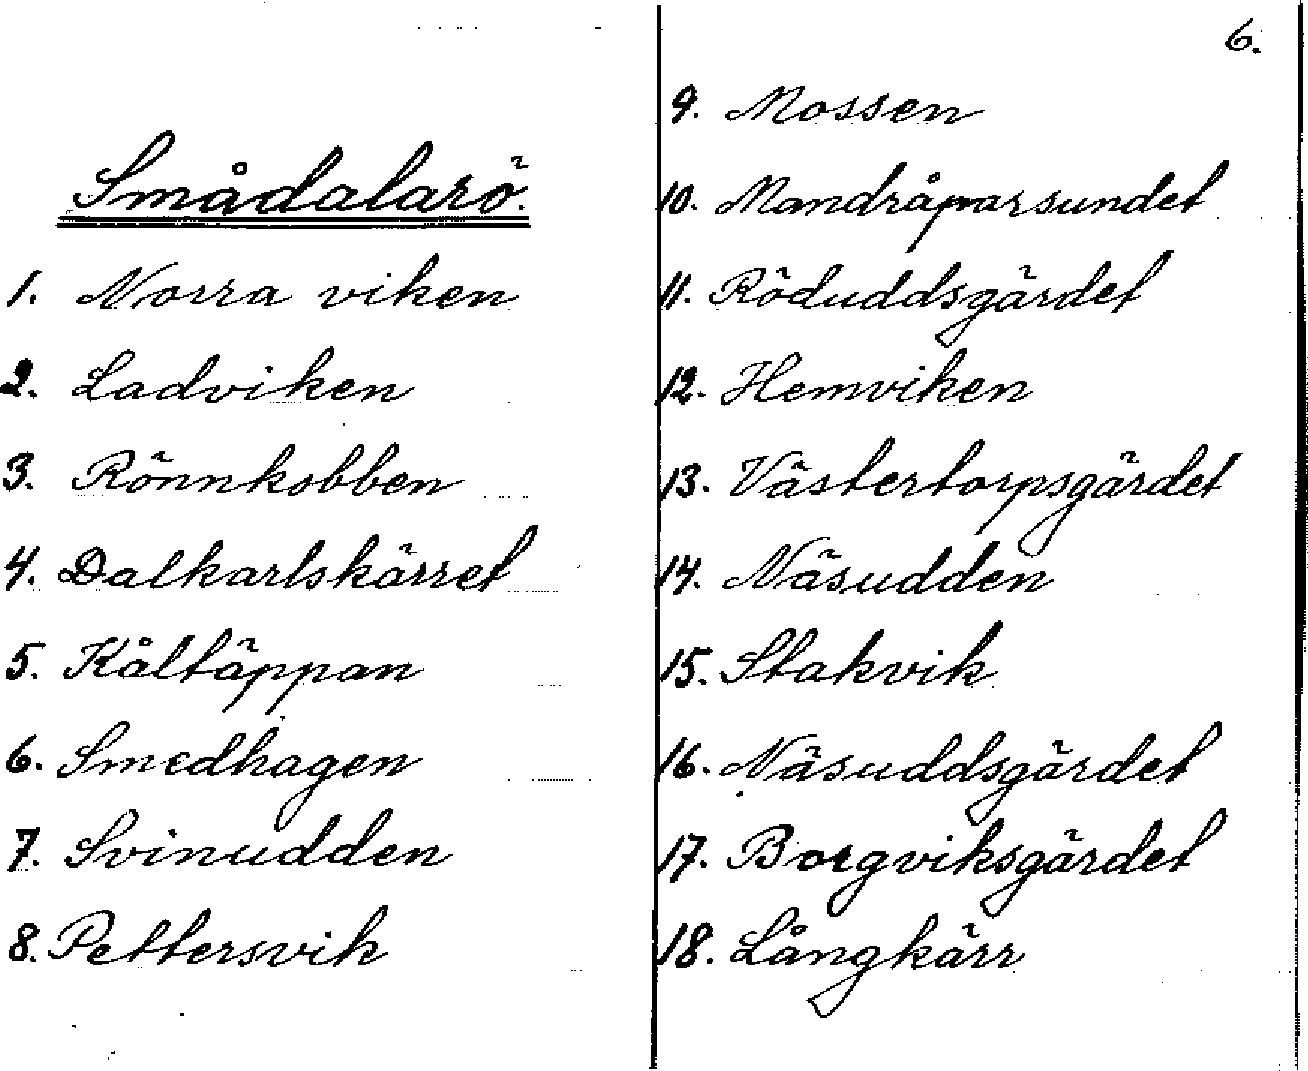 Smådalarö.
1. Norra viken
2. Ladviken
3. Rönnkobben
4. Dalkarlskärret
5. Kåltäppan
6. Smedhagen
7. Svinudden
8. Pettersvik
6.
9. Mossen
10. Mandråparsundet
11. Röduddsgärdet
12. Hemviken
13. Västertorpsgärdet
14. Näsudden
15. Stakvik
16. Näsuddsgärdet
17. Borgviksgärdet
18. Långkärr